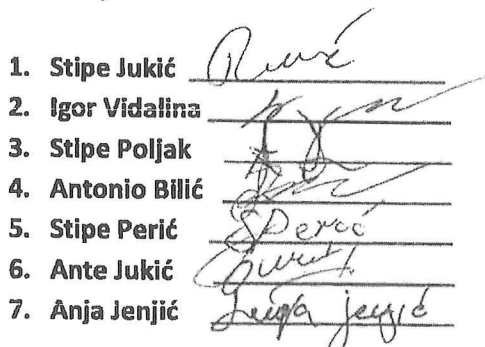 1. Stipe Jukić
2. Igor Vidalina
3. Stipe Poljak
4. Antonio Bilić
5. Stipe Perić SPerić
6. Ante Jukić
7. Anja Jenjić Anja Jenjić